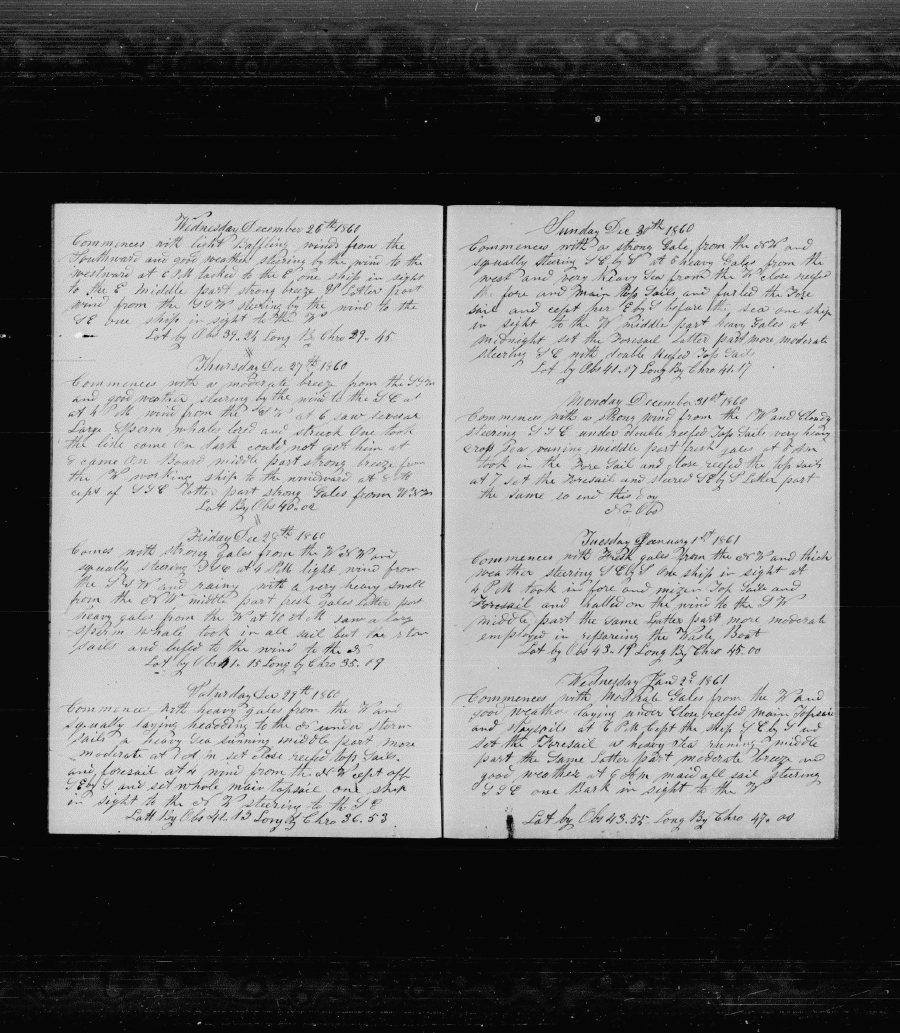 Wednesday December 26th 1860
Commences with light Baffling winds from the
Southward and good weather steering by the wind to the
westward at 6 P.M tacked to the E one ship in sight
to the E middle part strong breeze Latter part
wind from the SSW steering by the wind to the
SE one ship in sight to the W
Lat by Obs 39.24 Long By Chro 29.45
Thursday Dec 27th 1860
Commences with a moderate breeze from the
and good weather steering by the wind to the SE at
at 4 P.M wind from the SW at 6 saw several
Large Sperm whales lored and struck One took
the line came On dark could not get him at
8 came On Board middle part strong breeze from
the W working ship to the windward at
cept of SSE latter part strong Gales from WNW
Lat By Obs 40.02
Friday Dec 28th 1860
Comes with strong gales from the WNW and
squally steering SSE at 4 P.M light wind from
the SSW and rainy with a very heavy swell
from the NW middle part fresh gales Latter part
heavy gales from the W at 10 A.M saw a larg
sperm whale took in all sail but the
sails and lufed to the wind to the
Lat by Obs 41.15 Long by Chro 35.09
Saturday Dec 29th 1860
Commence with heavy gales from the W and
squally laying heading to the N under storm
sails a heavy sea running middle part more
moderate at set close reefed top Sails
and foresail at 4 wind from the NW cept off
SEbyS and set whole main topsail one ship
in sight to the NW steering to the SE
Latt By Obs 41.13 Long By Chro 36.53
Sunday Dec 30th 1860
Commences with a strong Gale from the NW and
squally steering SEbyS at 6 heavy Gales from the
west and Very heavy Sea from the W close reefed
the fore and main Top Sails and furled the Fore
sail and cept her EbyS before the sea one ship
in sight to the W middle part heavy Gales at
midnight set the Foresail Latter part more moderate
steering SE with double Reefed Top Sails
Lat by Obs 41.57 Long By Chro 41.17
Monday December 31st 1860
Commences with a strong wind from the W and Cloudy
steering SSE under double reefed Top Sails very heavy
crop Sea running middle part fresh gales at
took in the Fore Sail and close reefed the top sails
at 7 set the Foresail and steered SEbyS Latter part
the same so end this day
No Obs
Tuesday January 1st 1861
Commences with Fresh gales from the NW and thick
weather steering SEbyS One ship in sight at
4 P.M took in fore and mizen Top Sails and
Foresail and halled on the wind to the SW
middle part the same Latter part more moderate
employed in repareing the Waste Boat
Lat by Obs 43.19 Long By Chro 45.00
Wednesday Jan 2d 1861
Commences with Moderate Gales from the W and
good weather laying under Close reefed main Topsail
and staysails at 6 P.M Cept the ship SEbyS and
set the Foresail a heavy sea runing middle
part the Same Latter part moderate breeze and
good weather at 6 A.M maid all sail steering
SSE one Bark in sight to the W
Lat by Obs 43.55 Long By Chro 47.00